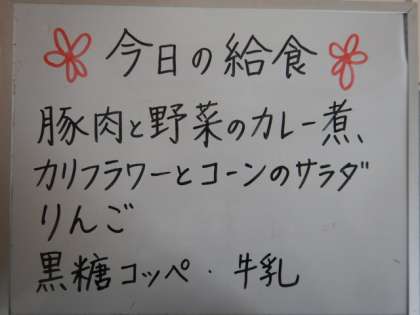 今日の給食
豚肉と野菜のカレー煮、
カリフラワーとコーンのサラダ
りんご
黒糖コッペ・牛乳